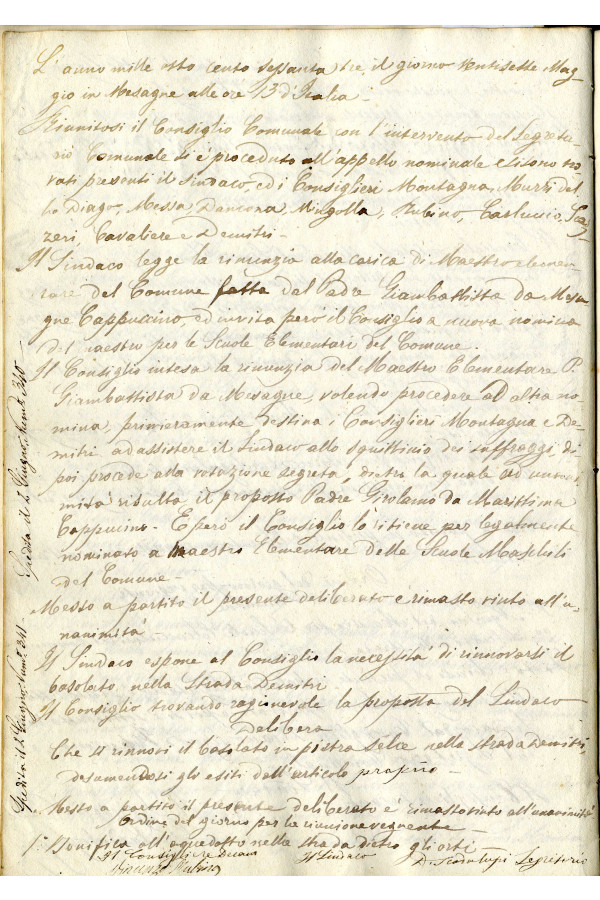 L'anno mille otto cento sessanta tre, il giorno Ventisette Mag-
gio in Mesagne alle ore 13 d'Italia -
Riunitosi il Consiglio Comunale con l'intervento del Segreta-
rio Comunale si è proceduto all'appello nominale e si sono tro-
vati presenti il Sindaco, ed i Consiglieri Montagna, Murri del
Diago, Messa Dancona, Mingolla, Rubino, Carluccio,
Cavaliere e Demitri -
Il Sindaco legge la rinunzia alla carica di Maestro elemen-
tare del Comune fatta dal Padre Giambattista da Mesa-
gne Cappuccino, ed invita però il Consiglio a nuova nomina
del maestro per le Scuole Elementari del Comune.
Il Consiglio intesa la rinunzia del Maestro Elementare P.
Giambattista da Mesagne, volendo procedere ad altra no-
mina, primieramente destina i Consiglieri Montagna e De-
mitri ad assistere il Sindaco allo squittinio dei suffraggi, di
poi procede alla votazione segreta, dietro la quale ad unani-
mità risulta il proposto Padre Girolamo da Marittima
Cappuccino - E però il Consiglio lo ritiene per legalmente
nominato a Maestro Elementare delle Scuole Maschili
del Comune -
Messo a partito il presente deliberato è rimasto vinto all'u-
nanimità
Il Sindaco espone al Consiglio la necessità di rinnovarsi il
basolato nella Strada Demitri
Il Consiglio trovando ragionevole la proposta del Sindaco
Delibera
Che si rinnovi il basolato in pietra selce nella strada Demitri,
desumendosi gli esiti dall'articolo
Messo a partito il presente deliberato è rimasto vinto all'unanimità
Ordine del giorno per la riunione vegnente -
1° Bonifica all'aquedotto nella strada dietro gli orti -
Il Consigliere Il Sindaco D. Scodalupi Segretario
Rubino
Spedita il 2 Giugno, Num° 340 -
Spedita il 2 Giugno, Num° 341 -